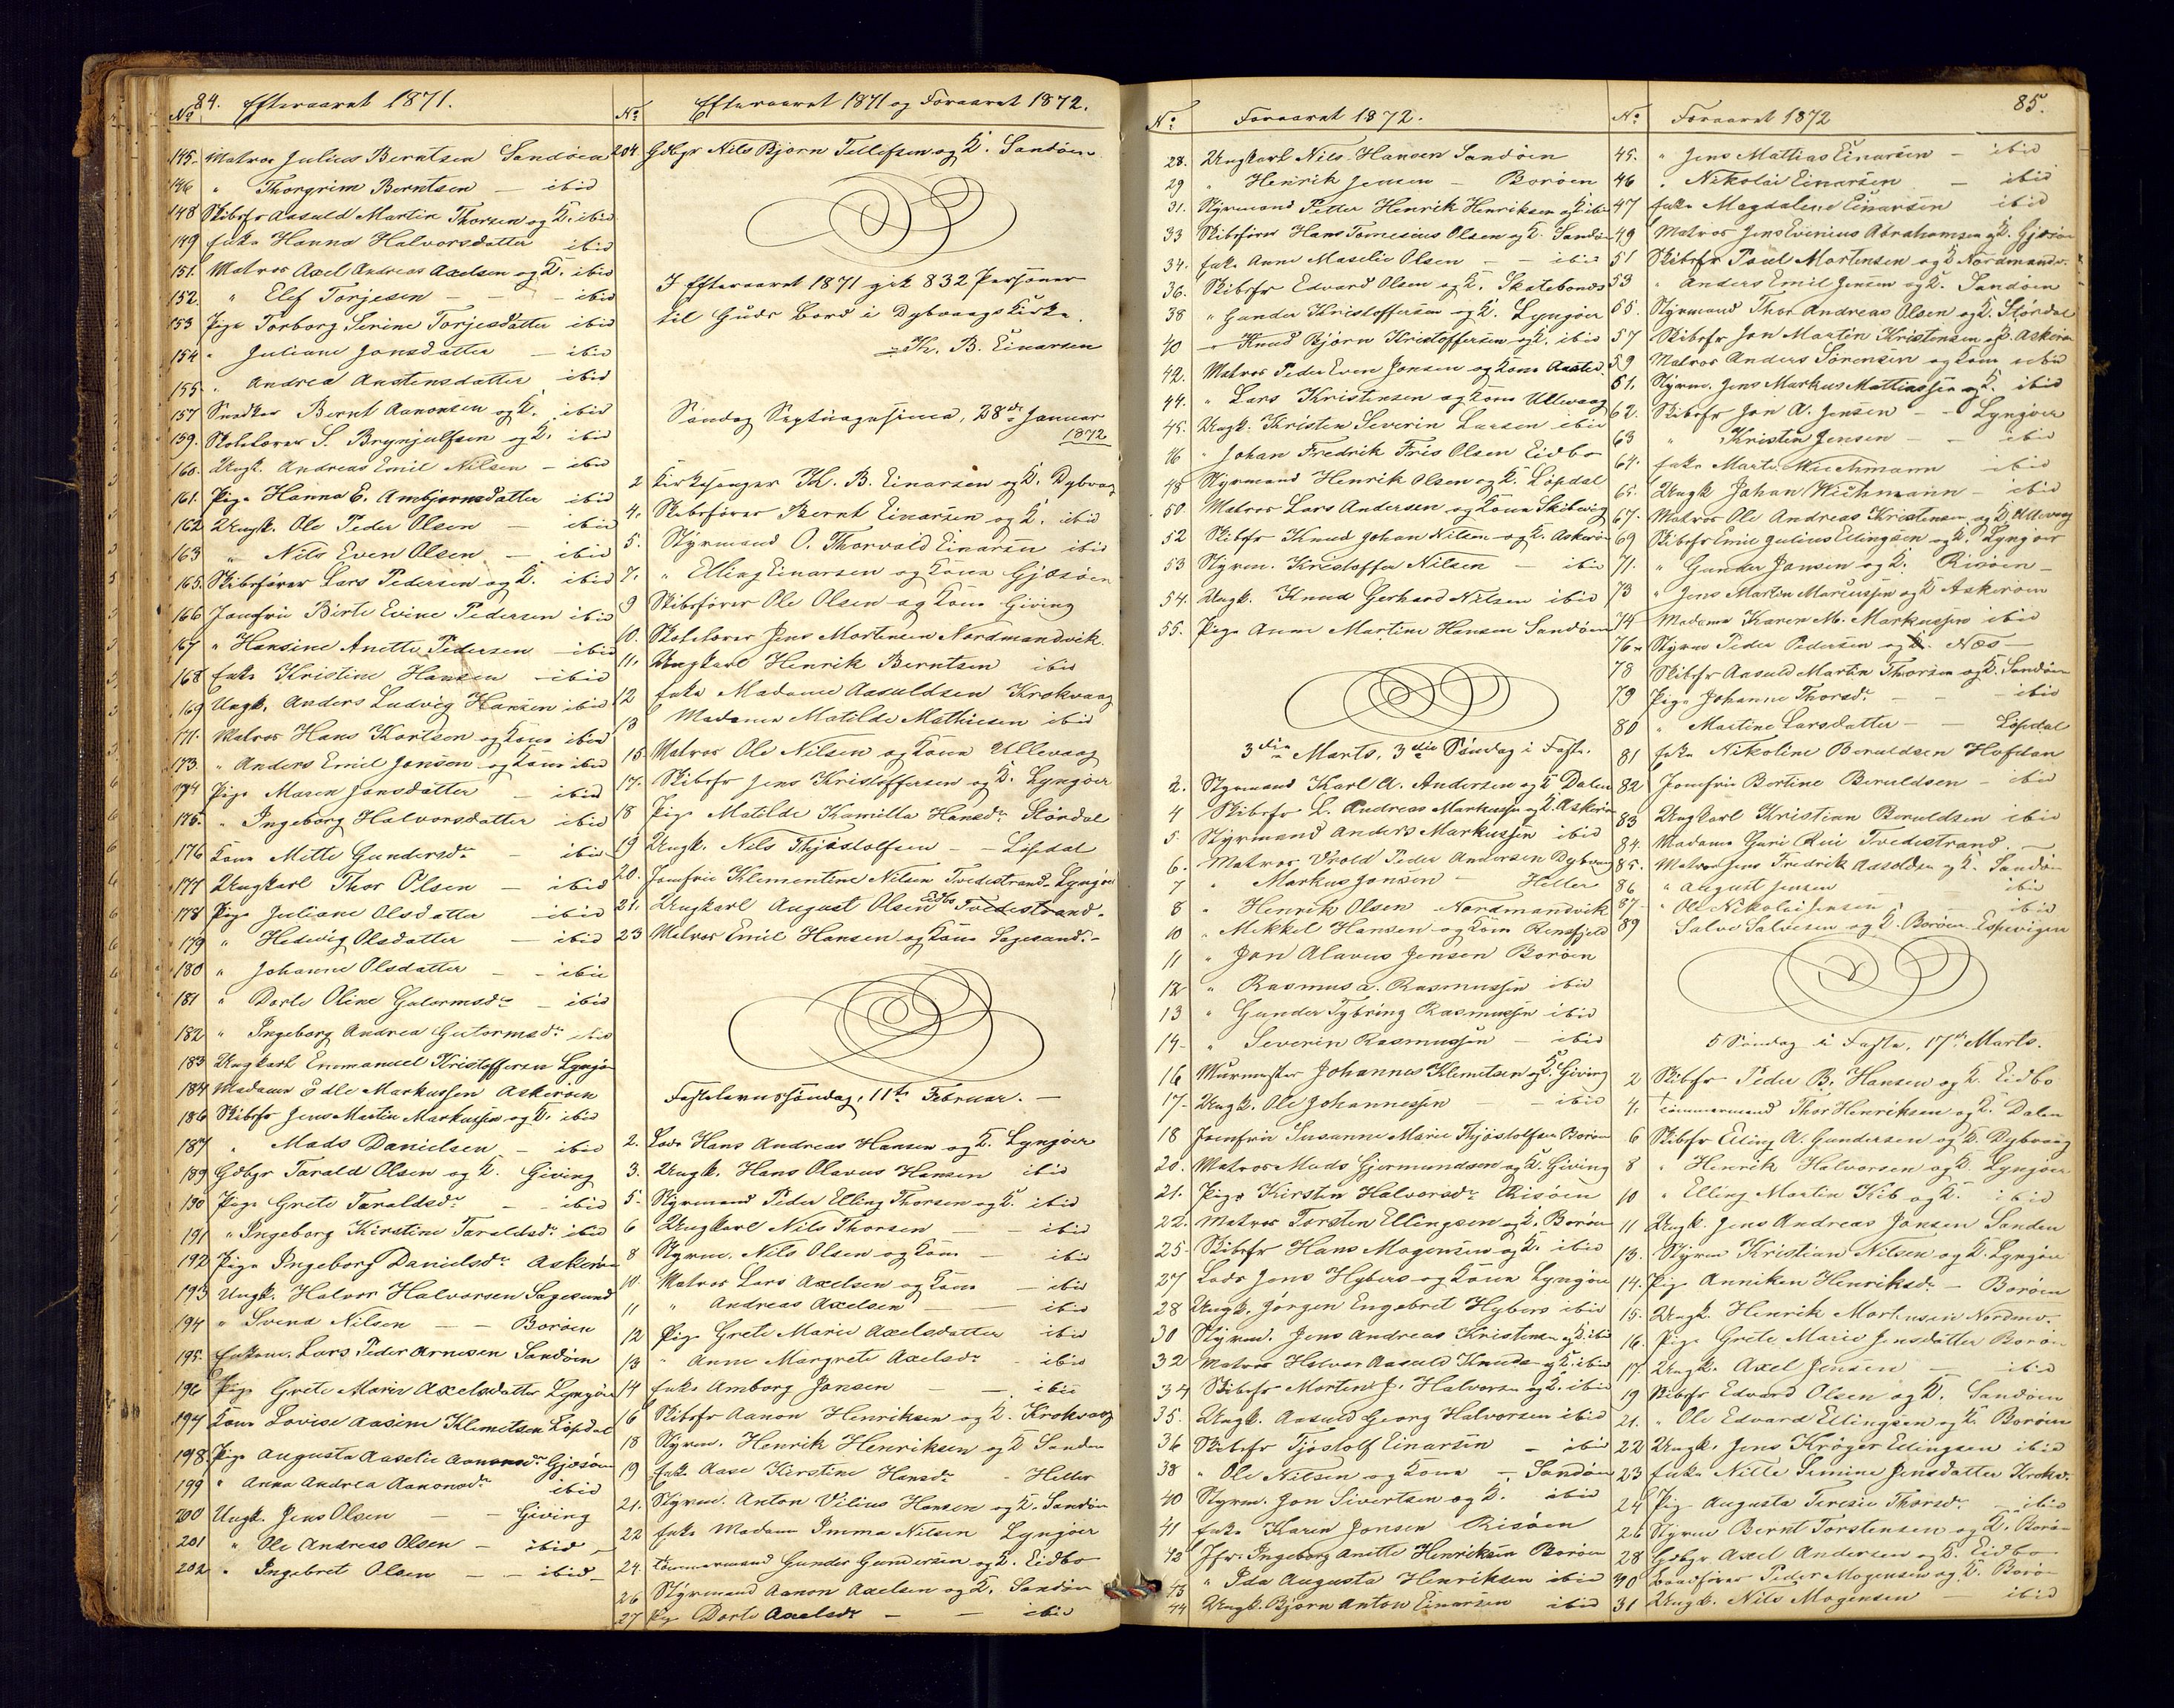 84. Efteraaret 1871.
No
145. Matros Julius Berntsen Sandöen
146 " Thorgrim Berntsen — ibid
148 Skibsfr Aasuld Martin Thorsen og K. ibid
149 Enke Hanna Halvorsdatter ibid
151. Matros Axel Andreas Axelsen og K. ibid
152. " Elef Torjesen — — ibid
153 Pige Torborg Serine Torjesdatter ibid
154 " Juliane Jonsdatter — ibid
155. " Andrea Austensdatter ibid
157 Snedker Bernt Aanonsen og K. ibid
159. Skolelærer S. Brynjulfsen og K. ibid
160. Ungk. Andreas Emil Nilsen — ibid
161. Pige Hanna E. Ambjornsdatter ibid
162 Ungk. Ole Peder Olsen — ibid
163 " Nils Even Olsen — ibid
165. Skibsfører Lars Pedersen og K. ibid
166 Jomfru Birte Evine Pedersen ibid
167 " Hansine Anette Pedersen — ibid
168 Enke Kristine Hansen — ibid
169 Ungk. Anders Ludvig Hansen ibid
171. Matros Hans Kortsen og Kone ibid
173. " Anders Emil Jensen og Kone ibid
174 Pige Maren Jansdatter — ibid
175. " Ingeborg Halvorsdatter ibid
176 Kone Mette Gundersdr — ibid
177 Ungkarl Thor Olsen — ibid
178 Pige Juliane Olsdatter — ibid
179 " Hedevig Olsdatter — ibid
180 " Johanne Olsdatter — — ibid
181 " Dorte Oline Gutormsdr — ibid
182 " Ingeborg Andrea Gutormsdr ibid
183 Ungkarl Emmanuel Kristoffersen Lyngör
184 Madame Edle Markussen Askeröen
186 Skibsfr Jens Martin Markussen og K. ibid
187 " Mads Danielsen — ibid
189 Gdbgr Tarald Olsen og K. Giving
190 Pige Grete Taraldsdr — — ibid
191 " Ingeborg Kirstine Taraldsdr ibid
192 Pige Ingeborg Danielsdr Askeröen
193 Ungk. Halvor Halvorsen Sagesund
194 " Svend Nilsen — — Boröen
195. Lars Peder Arnesen Sandöen
196 Pige Grete Marie Axelsdatter Lyngör
197 Kone Lovise Aasine Klemetsen Löpdal
198. Pige Augusta Aaselie Aanonsdr Gjösöen
199 " Anna Andrea Aanonsdr ibid
200 Ungk. Jens Olsen — — Giving
201 " Ole Andreas Olsen — ibid —
202 " Ingebret Olsen — — ibid —
No Efteraaret 1871 og Foraaret 1872.
204. Gdbgr Nils Bjørn Tellefsen og K. Sandöen
I Efteraaret 1871 gik 832 Personer
til Guds Bord i Dybvaags Kirke.
Th. B. Einarsen
Søndag Septuagesima, 28de Januar
1872
2 Kirkesanger Th. B. Einarsen og K. Dybvaag
4. Skibsfører Bernt Einarsen og K. ibid
5. Styrmand O. Thorvald Einarsen ibid
7. " Elling Einarsen og Kone Gjösöen
9 Skibsfører Ole Olsen og Kone Giving
10. Skolelærer Jens Mortensen Nordmandvik.
11. Ungkarl Henrik Berntsen ibid
12 Enke Madame Aasuldsen Krokvaag
13 Madame Matilde Mathiesen ibid
15. Matros Ole Nilsen og Kone Ullevaag
17. Skibsfr Jens Kristoffersen og K. Lyngöer
18 Pige Matilde Kamilla Hansdr Stördal
19 Ungk. Nils Thjöstolfsen — — Löpdal
20. Jomfru Klementine Nilsen Tvedestrand. Lyngör
21. Ungkarl August Olsen Eidbo Tvedestrand.
23 Matros Emil Hansen og Kone Sagesund. —
Fastelavnssøndag, 11te Februar. —
2. Lods Hans Andreas Hansen og K. Lyngöer
3. Ungk. Hans Olavus Hansen ibid
5. Styrmand Peder Elling Thorsen og K. ibid
6 Ungkarl Nils Thorsen — — ibid
8 Styrm. Nils Olsen og Kone — ibid
10. Matros Lars Axelsen og Kone — ibid
11 " Andreas Axelsen — ibid
12 Pige Grete Marie Axelsdatter ibid
13 " Anne Margrete Axelsdr — ibid
14 Enke Amborg Jonsen — — ibid
16 Skibsfr Aanon Henriksen og K. Krokvaag
18 Styrm. Henrik Henriksen og K. Sanden
19 Enke Aase Kirstine Hansdr — Heller
21. Styrm. Anton Vilius Hansen og K. Sandöen
22 Enke Madame Imma Nilsen Lyngöer
24. Tömmermand Gunder Gundersen og K. Eidbo
26 Styrmand Aanon Axelsen og K. Sandöen
27 Pige Dorte Axelsdr — — ibid
No Foraaret 1872.
28. Ungkarl Nils Hansen Sandöen
29 " Henrik Jensen — Boröen
31. Styrmand Petter Henrik Henriksen og K. ibid
33 Skibsfører Hans Tomesius Olsen og K. Sandöen
34. Enke Anne Maselie Olsen — — ibid
36. Skibsfr Edvard Olsen og K. Skatebonds
38 " Gunder Kristoffersen og K. Lyngöer
40 " Knud Bjørn Kristoffersen og K. ibid
42. Matros Peder Even Jonsen og Kone
44. " Lars Kristensen og Kone Ullevaag
45. Ungk. Kristen Severin Larsen ibid
46 " Johan Fredrik Friis Olsen Eidbo
48 Styrmand Henrik Olsen og K. Löpdal
50. Matros Lars Andersen og Kone Skibevig
52 Skibsfr Knud Johan Nilsen og K. Askeröen
53 Styrm. Kristoffer Nilsen — ibid
54. Ungk. Knud Gerhard Nilsen ibid
55. Pige Anne Martine Hansen Sandöen
3die Marts, 3die Søndag i Faste.
2. Styrmand Karl A. Andersen og K Dalen
4 Skibsfr L. Andreas Markussen og K. Askeröen
5. Styrmand Anders Markussen ibid
6. Matros Vrold Peder Andersen Dybvaag
7 " Markus Jonsen — Heller
8 " Henrik Olsen Nordmandvik
10 " Mikkel Hansen og Kone Rensfjeld
11 " Jon Alavus Jensen Boröen
12 " Rasmus A. Rasmussen ibid
13 " Gunder Tybring Rasmussen ibid
14. " Severin Rasmussen — ibid
16 Murmester Johannes Klemetsen og K. Giving
17. Ungk. Ole Johannessen — — ibid
18 Jomfru Susanne Marie Thjöstolfsen Boröen
20. Matros Mads Gjermundsen og K. Giving
21. Pige Kirsten Halvorsdr Risöen
22. Matros Torsten Ellingsen og K. Boröen
25. Skibsfr Hans Mogensen og K. ibid
27 Lods Jens Hybers og Kone Lyngöer
28 Ungk. Jörgen Engebret Hybers ibid
30 Styrmd. Jens Andreas Kristensen og K. ibid
32 Matros Halvor Aasuld Knuds og K. ibid
34 Skibsfr Morten J. Halvorsen og K. ibid
35. Ungk. Aasuld Georg Halvorsen ibid
36 Skibsfr Tjöstolf Einarsen — ibid
38 " Ole Nilsen og Kone — Sandöen
40 Styrm. Jon Sivertsen og K. ibid
41 Enke Karen Jonsen Risöen
42 Jfr. Ingeborg Anette Henriksen Boröen
43 " Ida Augusta Henriksen ibid
44 Ungk. Bjørn Anton Einarsen ibid
No Foraaret 1872 85.
45. " Jens Mattias Einarsen — ibid
46 " Nikolai Einarsen — ibid
47 Enke Magdalene Einarsen ibid
49 Matros Jens Evenius Abrahamsen og K. Gjösöen
51 Skibsfr Poul Mortensen og K Nordmandv.
53 " Anders Emil Jensen og K. Sandöen
55. Styrmand Thor Andreas Olsen og K. Stördal
57 Skibsfr Jon Martin Kristensen og K. Askeröen
59 Matros Anders Sörensen og Kone ibid
61. Styrm. Jens Markus Mattiassen og K. ibid
62. Skibsfr Jon A. Jensen — — Lyngöer
63 " Kristen Jensen — — ibid
64. Enke Marte Wichmann ibid
65. Ungk Johan Wichmann — ibid
67. Matros Ole Andreas Kristensen og K Ullevaag
69 Skibsfr Emil Julius Ellingsen og K. Lyngöer
71. " Gunder Jansen og K. Risöen —
73 " Jens Martin Marcussen og K Askeröen
74 Madame Karen M. Markussen ibid
76. Styrm Peder Pedersen og K. Næs —
78 Skibsfr Aasuld Martin Thorsen og K. Sandöen
79 Pige Johanne Thorsdr — — ibid
80 " Martine Larsdatter — — Löpdal
81 Enke Nikoline Beruldsen Hofdan
82 Jomfru Bertine Beruldsen — ibid
83 Ungkarl Kristian Beruldsen ibid
84. Madame Guri Rui Tvedestrand. —
85. Matros Jens Fredrik Aasuldsen og K. Sandöen
86 " August Jensen — ibid
87 " Ole Nikolai Jensen — ibid
89 Salve Salvesen og K. Boröen Espevigen
5 Søndag i Faste, 17de Marts.
2 Skibsfr Peder B. Hansen og K. Eidbo
4. Tömmermand Thor Henriksen og K. Dalen
6 Skibsfr Elling A. Gundersen og K. Dybvaag
8 " Henrik Halvorsen og K. Lyngöer
10 " Elling Martin Kib og K. ibid
11 Ungk. Jens Andreas Jonsen Sanden
13. Styrm Kristian Nilsen og K. Lyngöer
14. Pige Anniken Henriksdr — Boröen
15. Ungk. Henrik Mortensen Nordmv.
16. Pige Grete Marie Jensdatter Boröen
17. Ungk. Axel Jensen — ibid
19 Skibsfr Edvard Olsen og K. Sandöen
21. " Ole Edvard Ellingsen og K. Boröen
22 Ungk. Jens Kröger Ellingsen ibid
23 Enke Nille Simine Jensdatter Krokv.
24 Pige Augusta Teresie Thorsdr — ibid
26 Styrm Bernt Torstensen og K. Boröen
28 Gdbgr. Axel Andersen og K. Eidbo
30 Peder Mogensen og K. Boröen
31 Ungk. Nils Mogensen — ibid